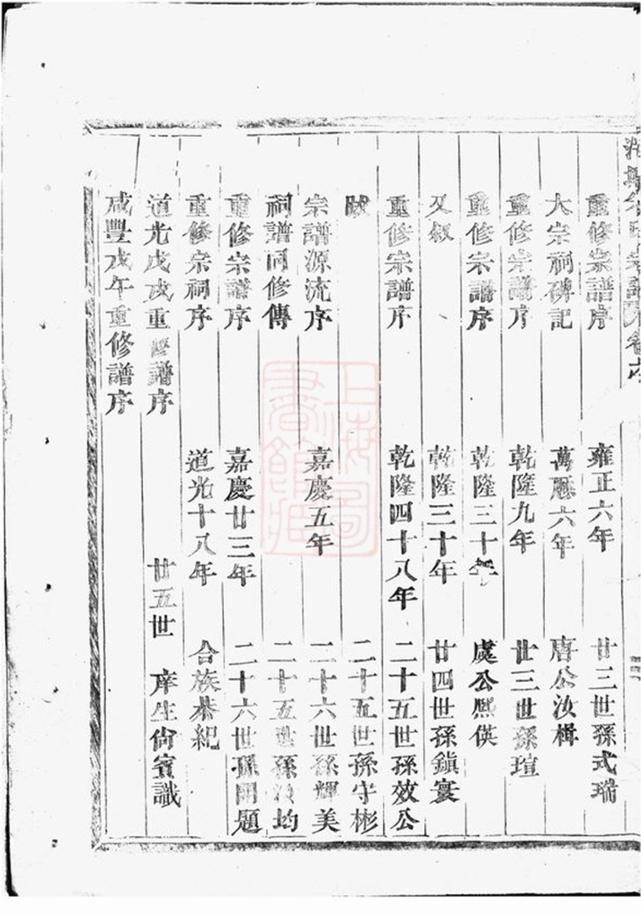 宗譜卷六
重修宗譜序 雍正六年 廿三世孫式瑞
大宗祠碑記 萬曆六年 唐公汝楫
重修宗譜序 乾隆九年 廿三世孫瑄
重修宗譜序 乾隆三十年 處公熈僙
又叙 乾隆三十年 廿四世孫鎮寰
重修宗譜序 乾隆四十八年 二十五世孫效公
跋 二十五世孫守彬
宗譜源流序 嘉慶五年 二十六世孫輝美
祠譜同修傳 二十五世孫 均
重修宗譜序 嘉慶廿三年 二十六世孫開題
重修宗祠序 道光十八年 合族恭紀
道光戊戌重修譜序 廿五世 庠生尚賓識
咸豐戊午重修譜序
上海圖書館藏